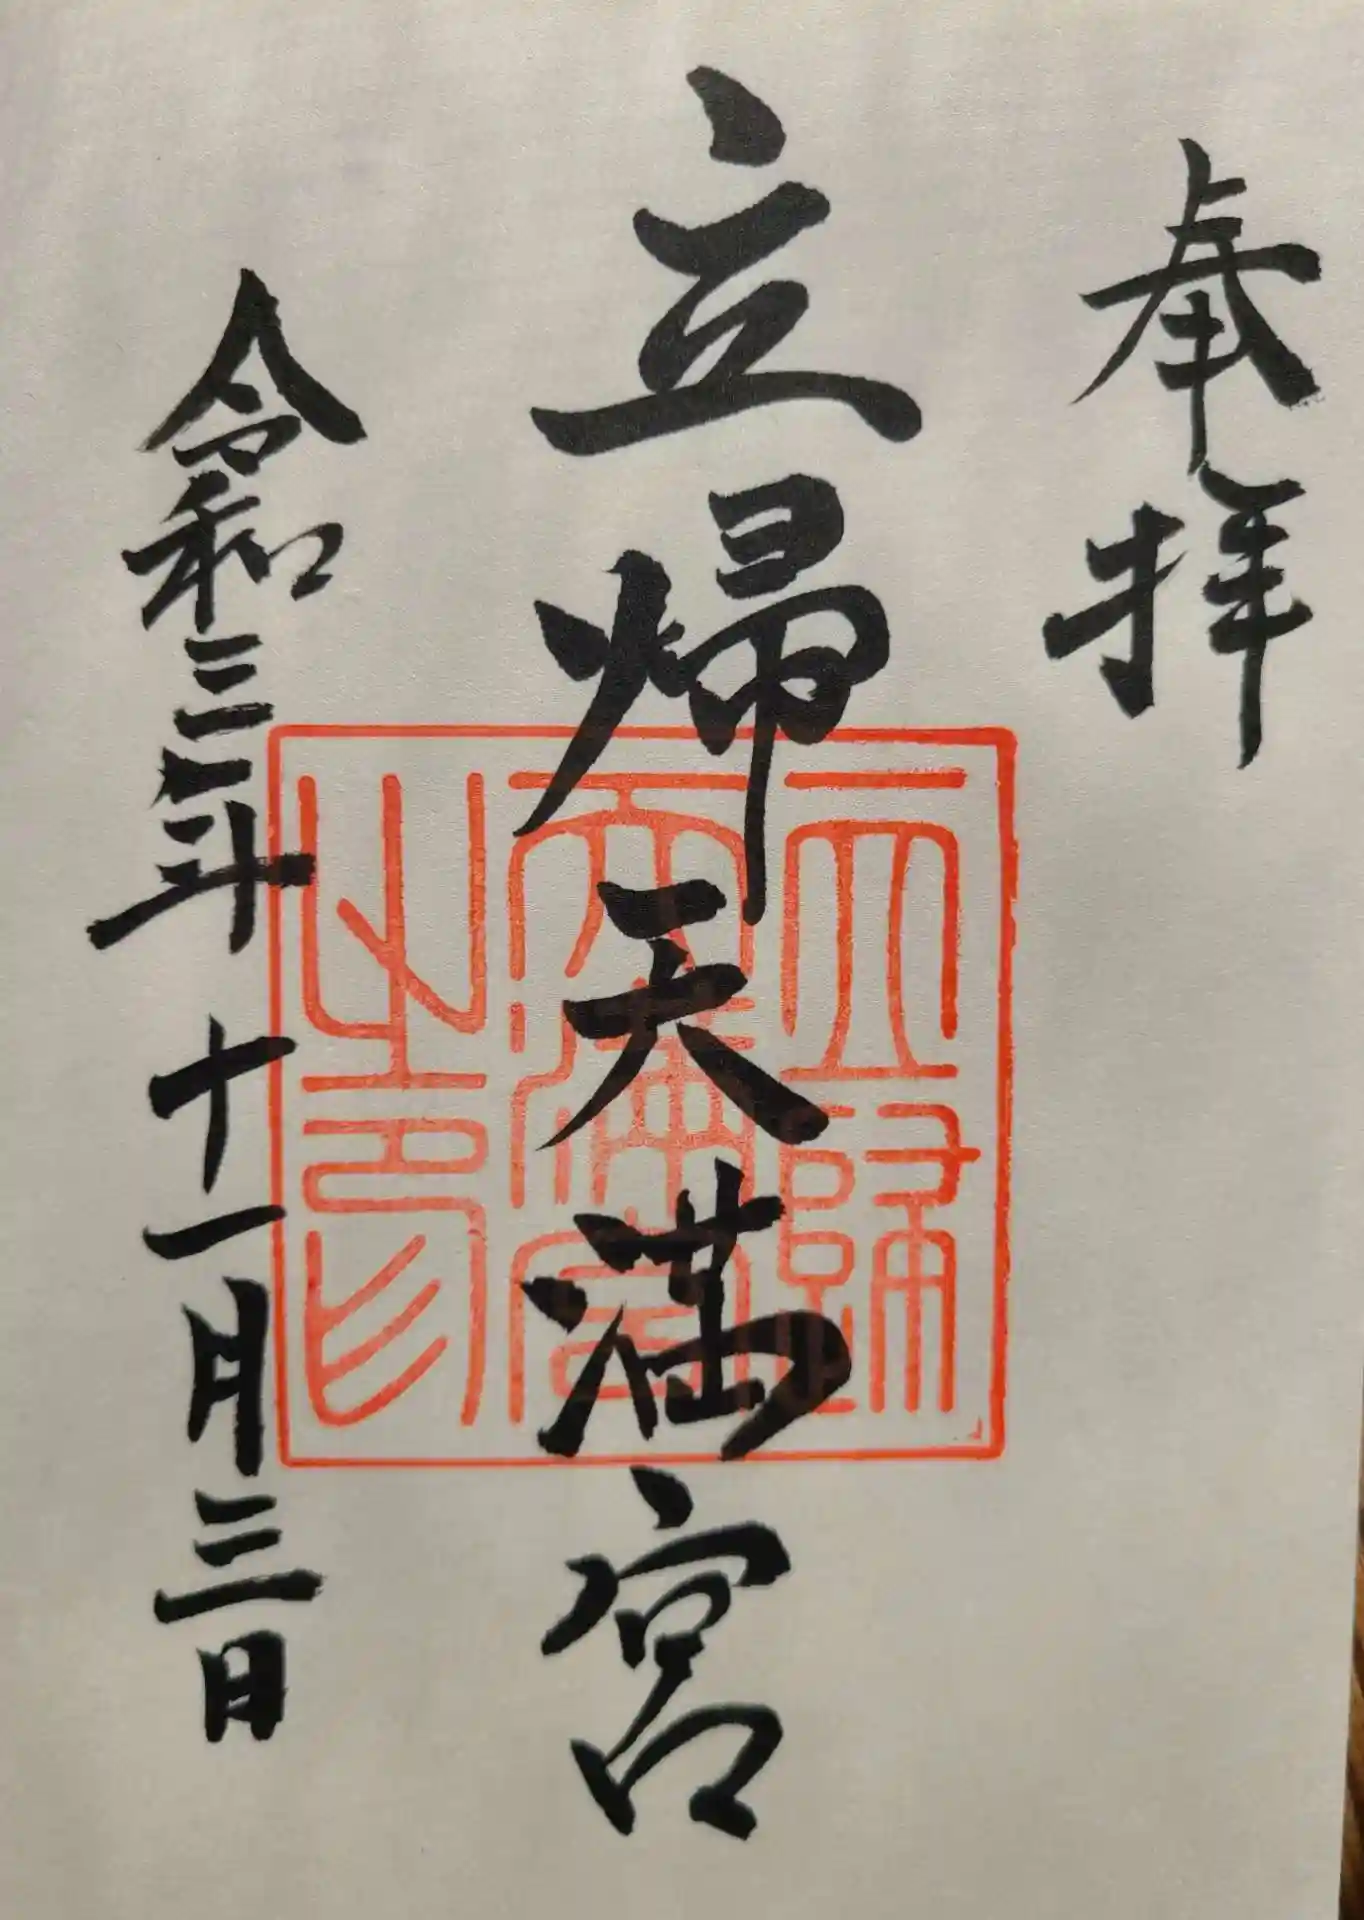 奉拝
立帰天満宮
立歸天満宮之印
令和三年十一月三日